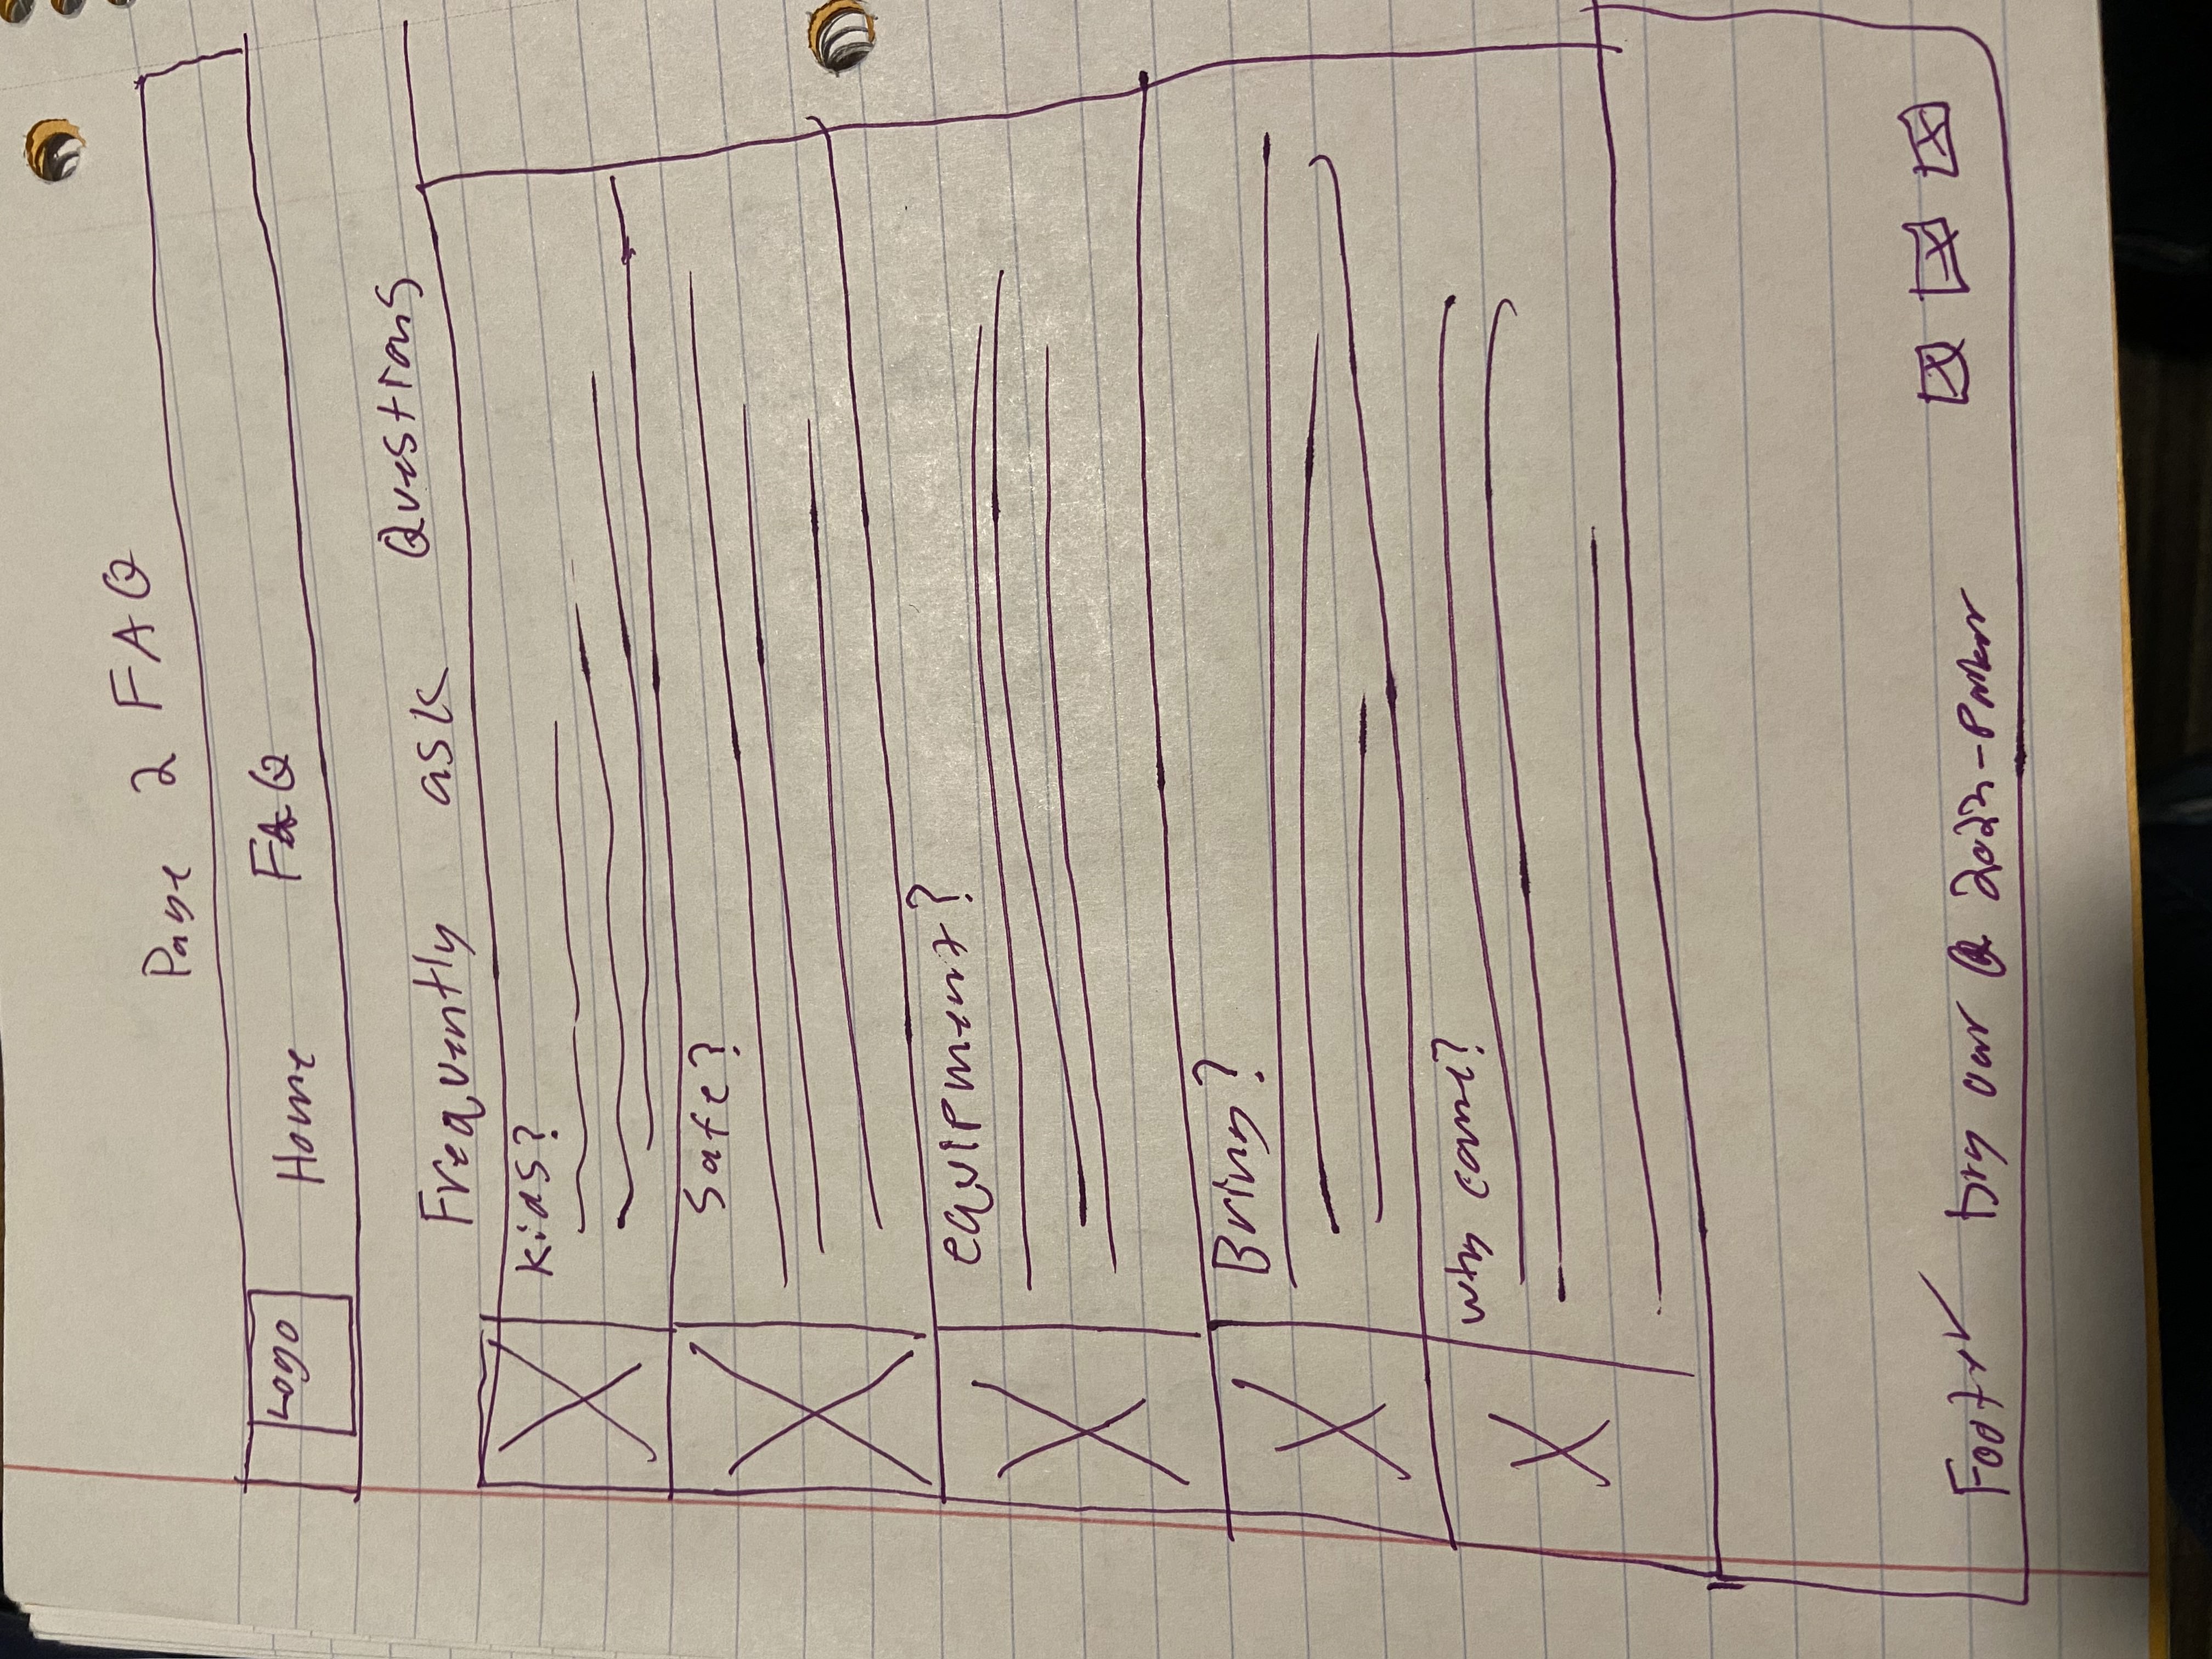 Page 2 FAQ
Logo Home FAQ
Frequently ask Questions
Kids?
Safe?
equipment?
Bring?
why come?
Footer